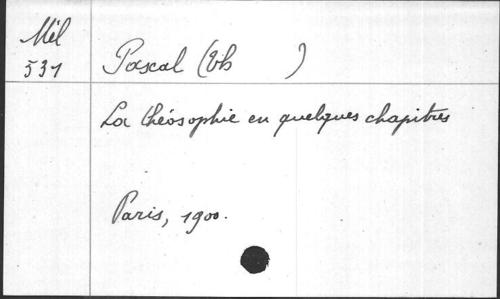 Mél
531
Pascal (Th )
La théosophie en quelques chapitres
Paris, 1900.